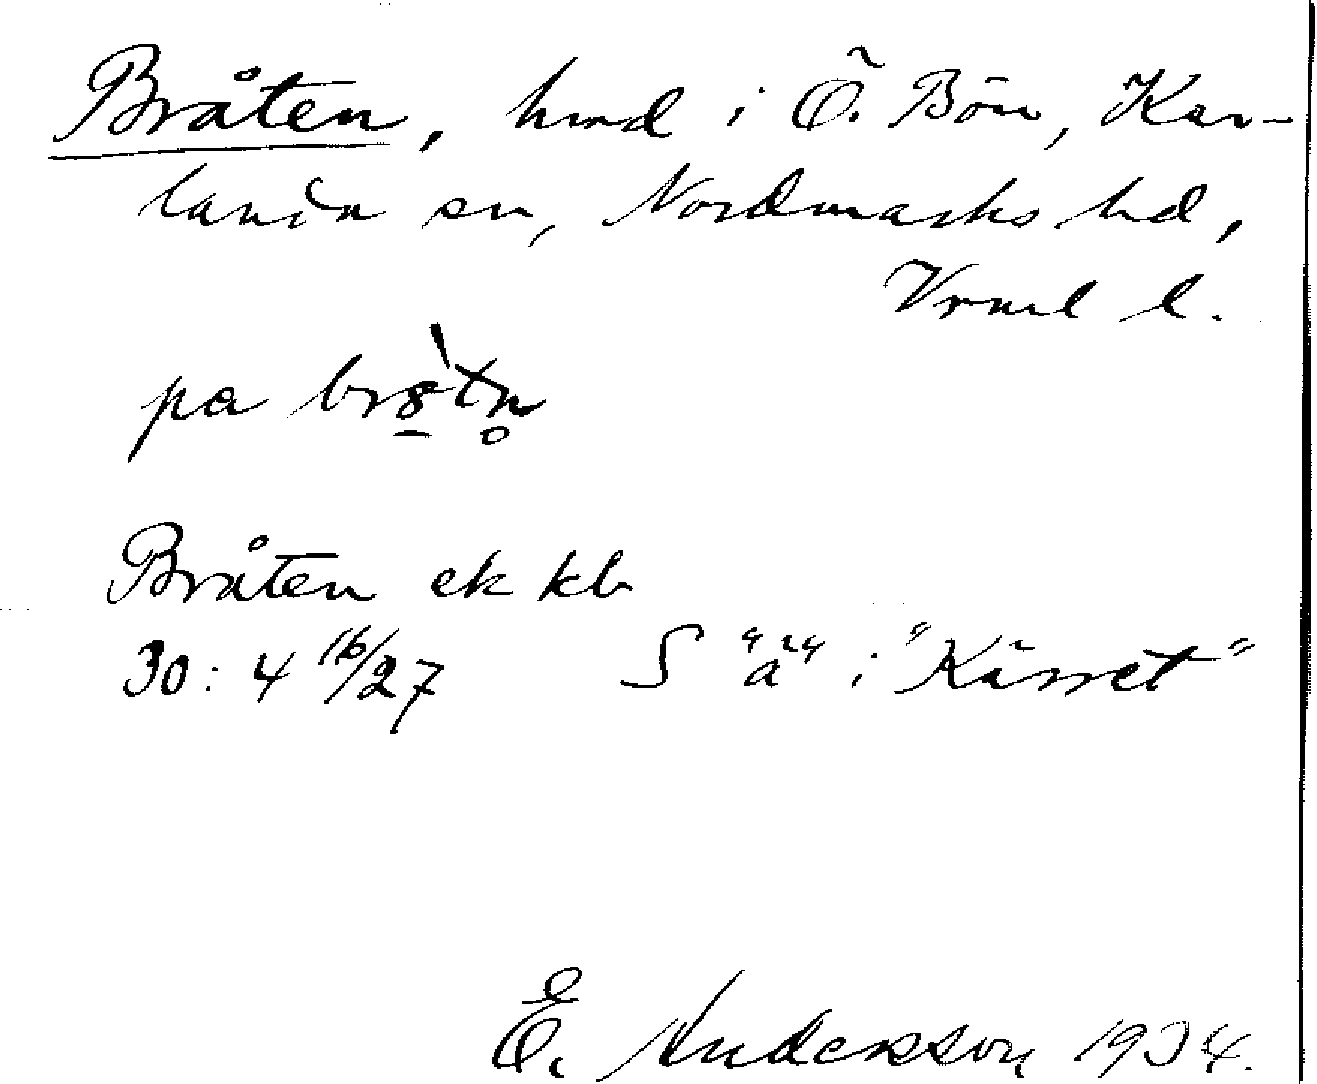 Bråten, hmd i Ö. Bön, Kar-
landa sn, Nordmarks hd,
Vrml l.
pa br8̲̀tn̥
Bråten ek kb
30:4 16/27 S "ä" i "Kärret"
E. Andersson 1934.